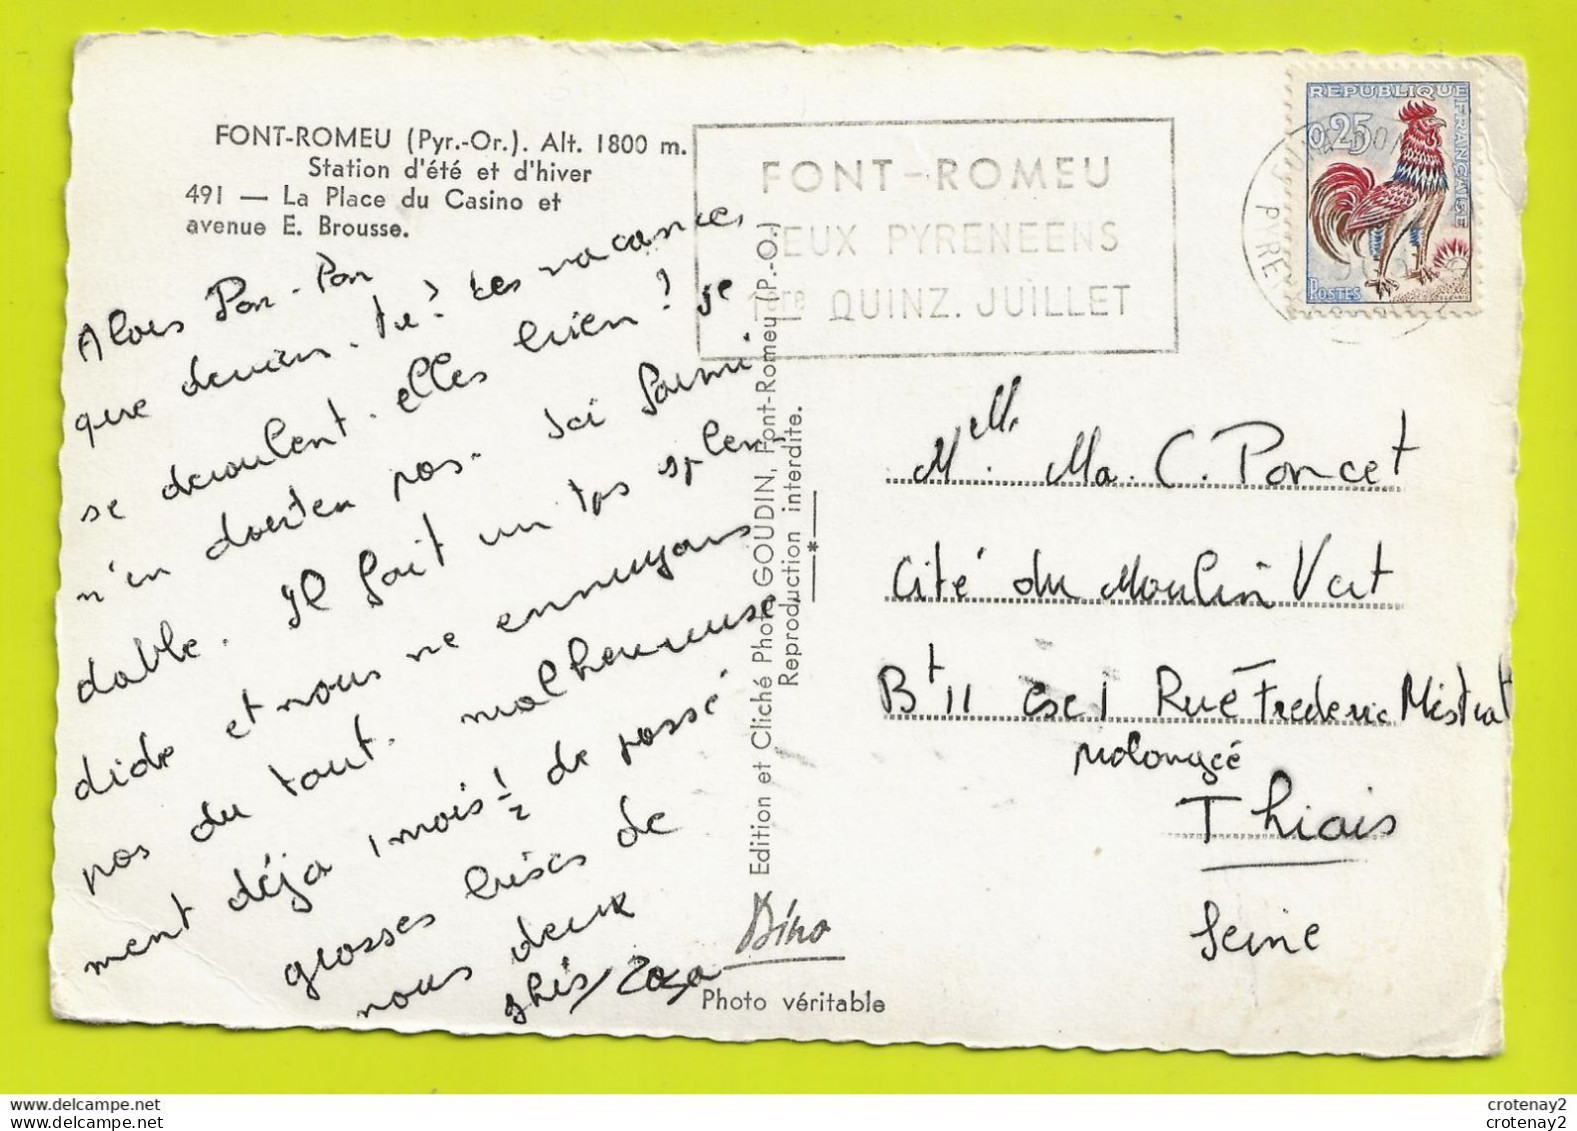 FONT-ROMEU (Pyr.-Or.). Alt. 1800 m.
Station d'été et d'hiver
491 — La Place du Casino et
avenue E. Brousse.
Alors Pon-Pon
que devien-tu? tes vacances
se déroulent-elles bien? je
n'en doute pas. Ici Parmi
dable. Il fait un tps splen
dide et nous ne ennuyons
pas du tout. malheureuse
ment déjà 1 mois 1/2 de passé
grosses bises de
nous deux
Ghis/Zaza
FONT-ROMEU
JEUX PYRENEENS
1ère QUINZ. JUILLET
REPUBLIQUE
FRANÇAISE
0,25
POSTES
PYRE
Edition et Cliché Photo GOUDIN, Font-Romeu (P.-O.)
Reproduction interdite.
Dino
Photo véritable
Melle. Ma. C. Poncet
Cité du Moulin Vert
Bt 11 esc 1 Rue Frederic Mistral
prolongée
Thiais
Seine
crotenay2
crotenay2
www.delcampe.net
www.delcampe.net